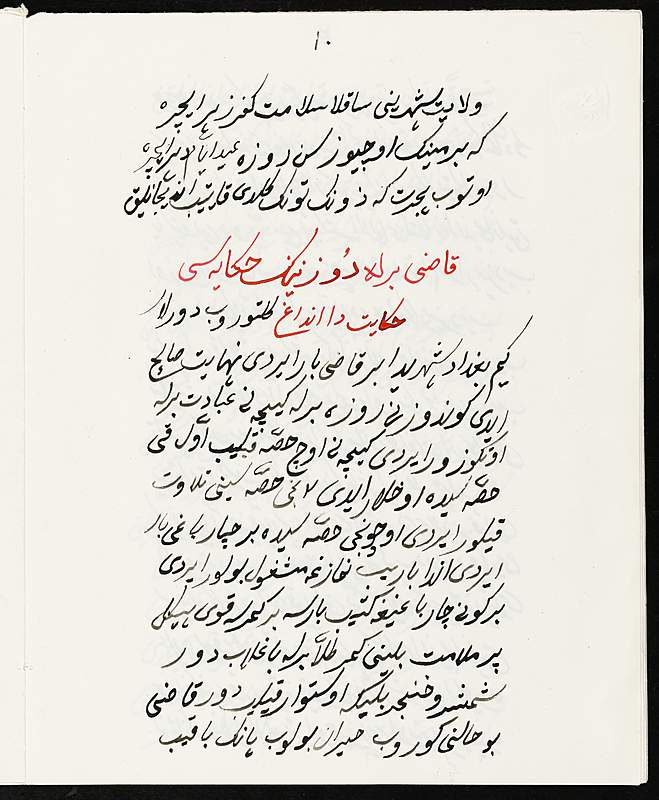 ١٠
ولایت شهرینی ساقلا سلامت کفر زهر ایچره
که بر مینک اوچیوز سن روزه عید ایام
اوتوب هجرت که ذونک تونک کلادی قاریتیب
قاضی برله دُوزنینک حکایه سی
حکایت دا انداغ کلتوروب دورلار
کیم بغداد شهریدا بر قاضی بار ایردی نهایت صالح
ایدی کوندوزنی روزه برله کیچه نی عبادت برله
اوتکوزور ایردی کیچه نی اوچ حصّه قیلیب اول قی
حصّه سیده اوخلار ایدی ۲ نجی حصّه سینی تلاوت
قیلور ایردی اوچونجی حصّه سیده بر چهار باغی بار
ایردی اندا باریب نمازغه مشغول بولور ایردی
بر کونی چار باغیغه کتیب بارسه بر کمرسه قوی هیکل
پر ملامت بلینی کمر طلّا برله باغلاب دور
شمشیر و خنجر بلیکه اوستوار قیلیب دور قاضی
بو حالنی کوروب حیران بولوب یانک باقیب